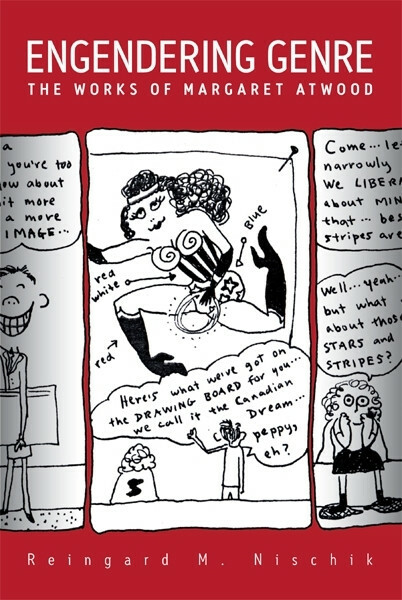 ENGENDERING GENRE
THE WORKS OF MARGARET ATWOOD
a
you're too
ow about
it more
a more
IMAGE...
red
white
BLUE
red
Here's what we've got on
the DRAWING BOARD for you...
we call it the Canadian
Dream...
peppy,
eh?
$
Come... le
narrowly
We LIBERA
about MIN
that... bes
stripes are
Well... yeah.
but what
about those
STARS and
STRIPES?
Reingard M. Nischik